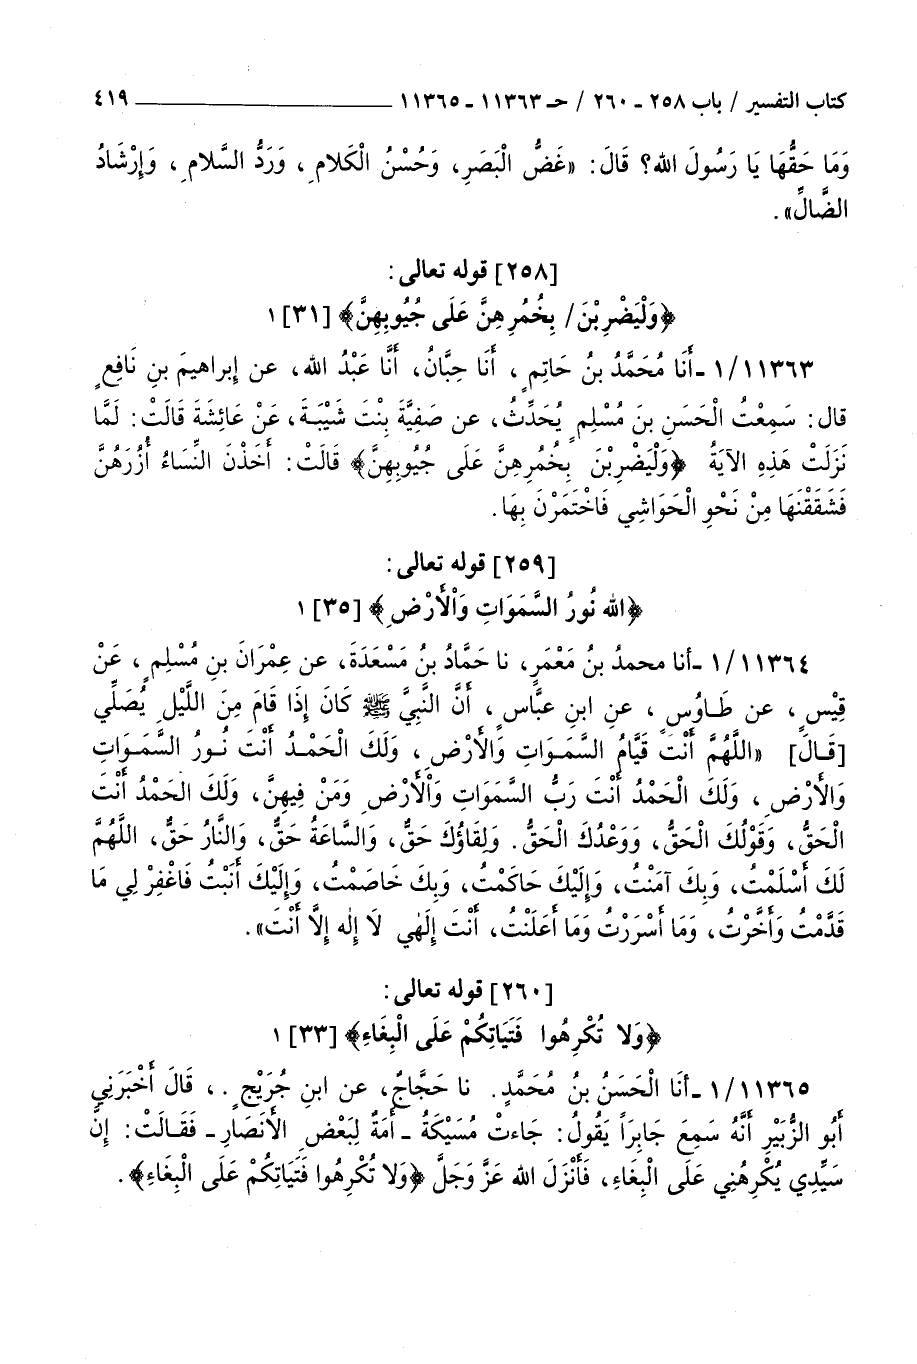 كتاب التفسير / باب ٢٥٨ ـ ٢٦٠ / حـ ١١٣٦٣ ـ ١١٣٦٥ ــــــــــــــــــــ ٤١٩
وَمَا حَقُّهَا يَا رَسُولَ الله؟ قَالَ: «غَضُّ الْبَصَرِ، وَحُسْنُ الْكَلامِ، وَرَدُّ السَّلامِ، وَإِرْشَادُ
الضَّالِّ».
[٢٥٨] قوله تعالى:
﴿وَلْيَضْرِبْنَ/ بِخُمُرِهِنَّ عَلَى جُيُوبِهِنَّ﴾ [٣١] ١
١/١١٣٦٣ ـ أَنَا مُحَمَّدُ بنُ حَاتِمٍ، أَنَا حِبَّانُ، أَنَّا عَبْدُ الله، عن إبراهيمَ بنِ نَافِعٍ
قال: سَمِعْتُ الْحَسَنِ بنَ مُسْلِمٍ يُحَدِّثُ، عن صَفِيَّةَ بِنْتَ شَيْبَةَ، عَنْ عَائِشَةَ قَالَتْ: لَمَّا
نَزَلَتْ هَذِهِ الآيَةُ ﴿وَلْيَضْرِبْنَ بِخُمُرِهِنَّ عَلَى جُيُوبِهِنَّ﴾ قَالَتْ: أَخَذْنَ النِّسَاءُ أُزُرَهُنَّ
فَشَقَقْنَهَا مِنْ نَحْوِ الْحَوَاشِي فَاخْتَمَرْنَ بِهَا.
[٢٥٩] قوله تعالى:
﴿الله نُورُ السَّمَوَاتِ وَالْأَرْضِ﴾ [٣٥] ١
١/١١٣٦٤ ـ أنا محمدُ بنُ مَعْمَرٍ، نا حَمَّادُ بنُ مَسْعَدَةَ، عن عِمْرَانَ بنِ مُسْلِمٍ، عَنْ
قِيْسٍ، عن طَاوُسٍ، عنِ ابنِ عبَّاسٍ، أَنَّ النَّبِيَّ ﷺ كَانَ إِذَا قَامَ مِنَ اللَّيْلِ يُصَلِّي
[قَالَ] «اللَّهُمَّ أَنْتَ قَيَّامُ السَّمَوَاتِ وَالأَرْضِ، وَلَكَ الْحَمْدُ أَنْتَ نُورُ السَّمَوَاتِ
وَالأَرْضِ، وَلَكَ الْحَمْدُ أَنْتَ رَبُّ السَّمَوَاتِ وَالْأَرْضِ وَمَنْ فِيهِنَّ، وَلَكَ الحَمْدُ أَنْتَ
الْحَقُّ، وَقَوْلُكَ الْحَقُّ، وَوَعْدُكَ الْحَقُّ. وَلِقَاؤُكَ حَقٌّ، وَالسَّاعَةُ حَقٌّ، وَالنَّارُ حَقٌّ، اللَّهُمَّ
لَكَ أَسْلَمْتُ، وَبِكَ آمَنْتُ، وَإِلَيْكَ حَاكَمْتُ، وَبِكَ خَاصَمْتُ، وَإِلَيْكَ أَنَبْتُ فَاغْفِرْ لِي مَا
قَدَّمْتُ وَأَخَّرْتُ، وَمَا أَسْرَرْتُ وَمَا أَعْلَنْتُ، أَنْتَ إِلَهٰي لَا إِلٰه إِلَّا أَنْتَ».
[٢٦٠] قوله تعالى:
﴿وَلا تُكْرِهُوا فَتَيَاتِكُمْ عَلَى الْبِغَاءِ﴾ [٣٣] ١
١/١١٣٦٥ ـ أنَا الْحَسَنُ بنُ مُحَمَّدٍ. نا حَجَّاجُ، عن ابنِ جُرَيْجٍ .، قَالَ أَخْبَرَنِي
أَبُو الزُّبَيْرِ أَنَّهُ سَمِعَ جَابِرَاً يَقُولُ: جَاءتْ مُسَيْكَةُ ـ أَمَةٌ لِبَعْضِ الأَنْصَارِ ـ فَقَالَتْ: إنَّ
سَيِّدِي يُكْرِهُنِي عَلَى الْبِغَاءِ، فَأَنْزَلَ الله عَزَّ وَجَلَّ ﴿وَلا تُكْرِهُوا فَتَيَاتِكُمْ عَلَى الْبِغَاءِ﴾.